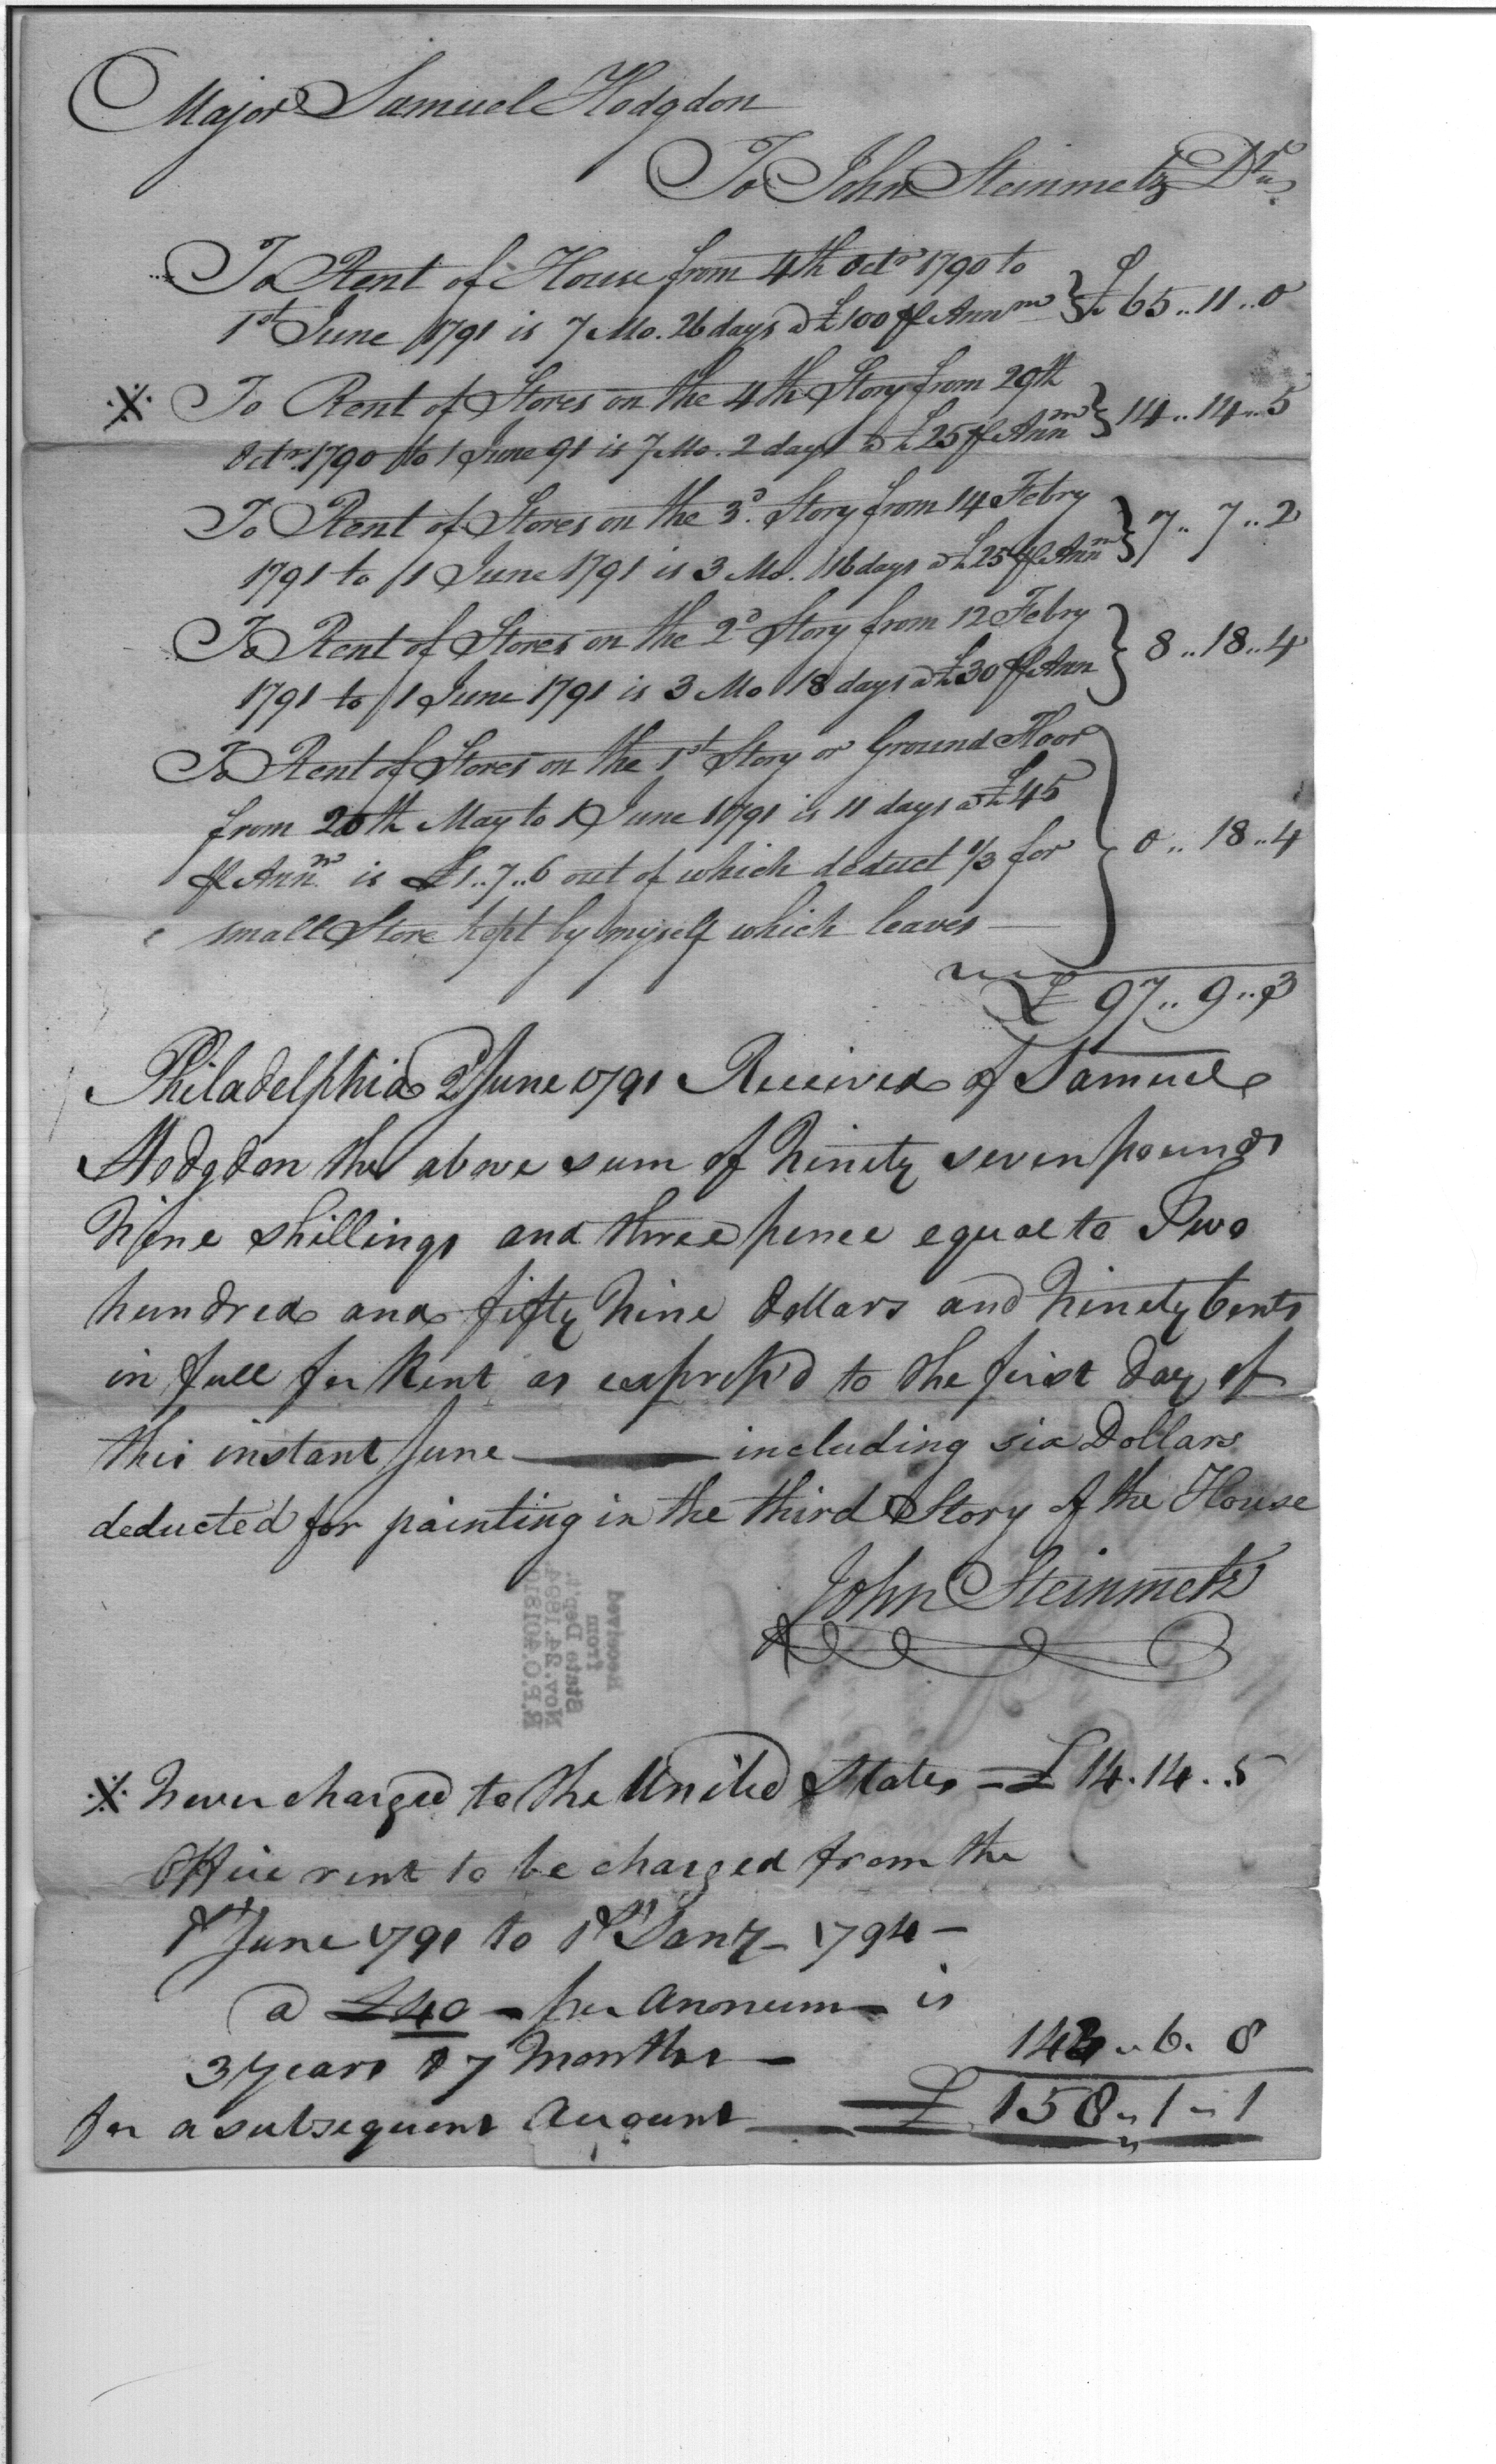 Major Samuel Hodgdon
To John Steinmetz Dr
To Rent of House from 4th Octr 1790 to
1st June 1791 is 7 Mo. 26 days @ £100 ⅌ Annm } £ 65..11..0
※ To Rent of Stores on the 4th Story from 29th
Octr 1790 to 1 June 91 is 7 Mo. 2 days @ £25 ⅌ Annm } 14..14..5
To Rent of Stores on the 3d. Story from 14 Febry
1791 to 1 June 1791 is 3 Mo. 16 days @ £25 ⅌ Annm } 7..7..2
To Rent of Stores on the 2d Story from 12 Febry
1791 to 1 June 1791 is 3 Mo 18 days @ £30 ⅌ Ann } 8..18..4
To Rent of Stores on the 1st Story or Ground Floor
from 20th May to 1 June 1791 is 11 days @ £45
⅌ Annm is £1..7..6 out of which deduct 1/3 for } 0..18..4
small Store kept by myself which leaves —
£ 97..9..3
Philadelphia 2d June 1791 Received of Samuel
Hodgdon the above sum of Ninety seven pounds
Nine shillings and three pence equal to Two
hundred and fifty Nine Dollars and Ninety Cents
in full for Rent as expressd to the first day of
this instant June — including six Dollars
deducted for painting in the third Story of the House
John Steinmetz
Received
from
State Dept.
Nov. 24. 1894.
R.P.O. 401810
※ Never charged to the United States — £ 14.14..5
Office rent to be charged from the
1st June 1791 to 1st Jany — 1794 —
@ £40 — per Annum — is
3 years & 7 Months — 143..6. 8
for a subsequent Account — £ 158..1..1